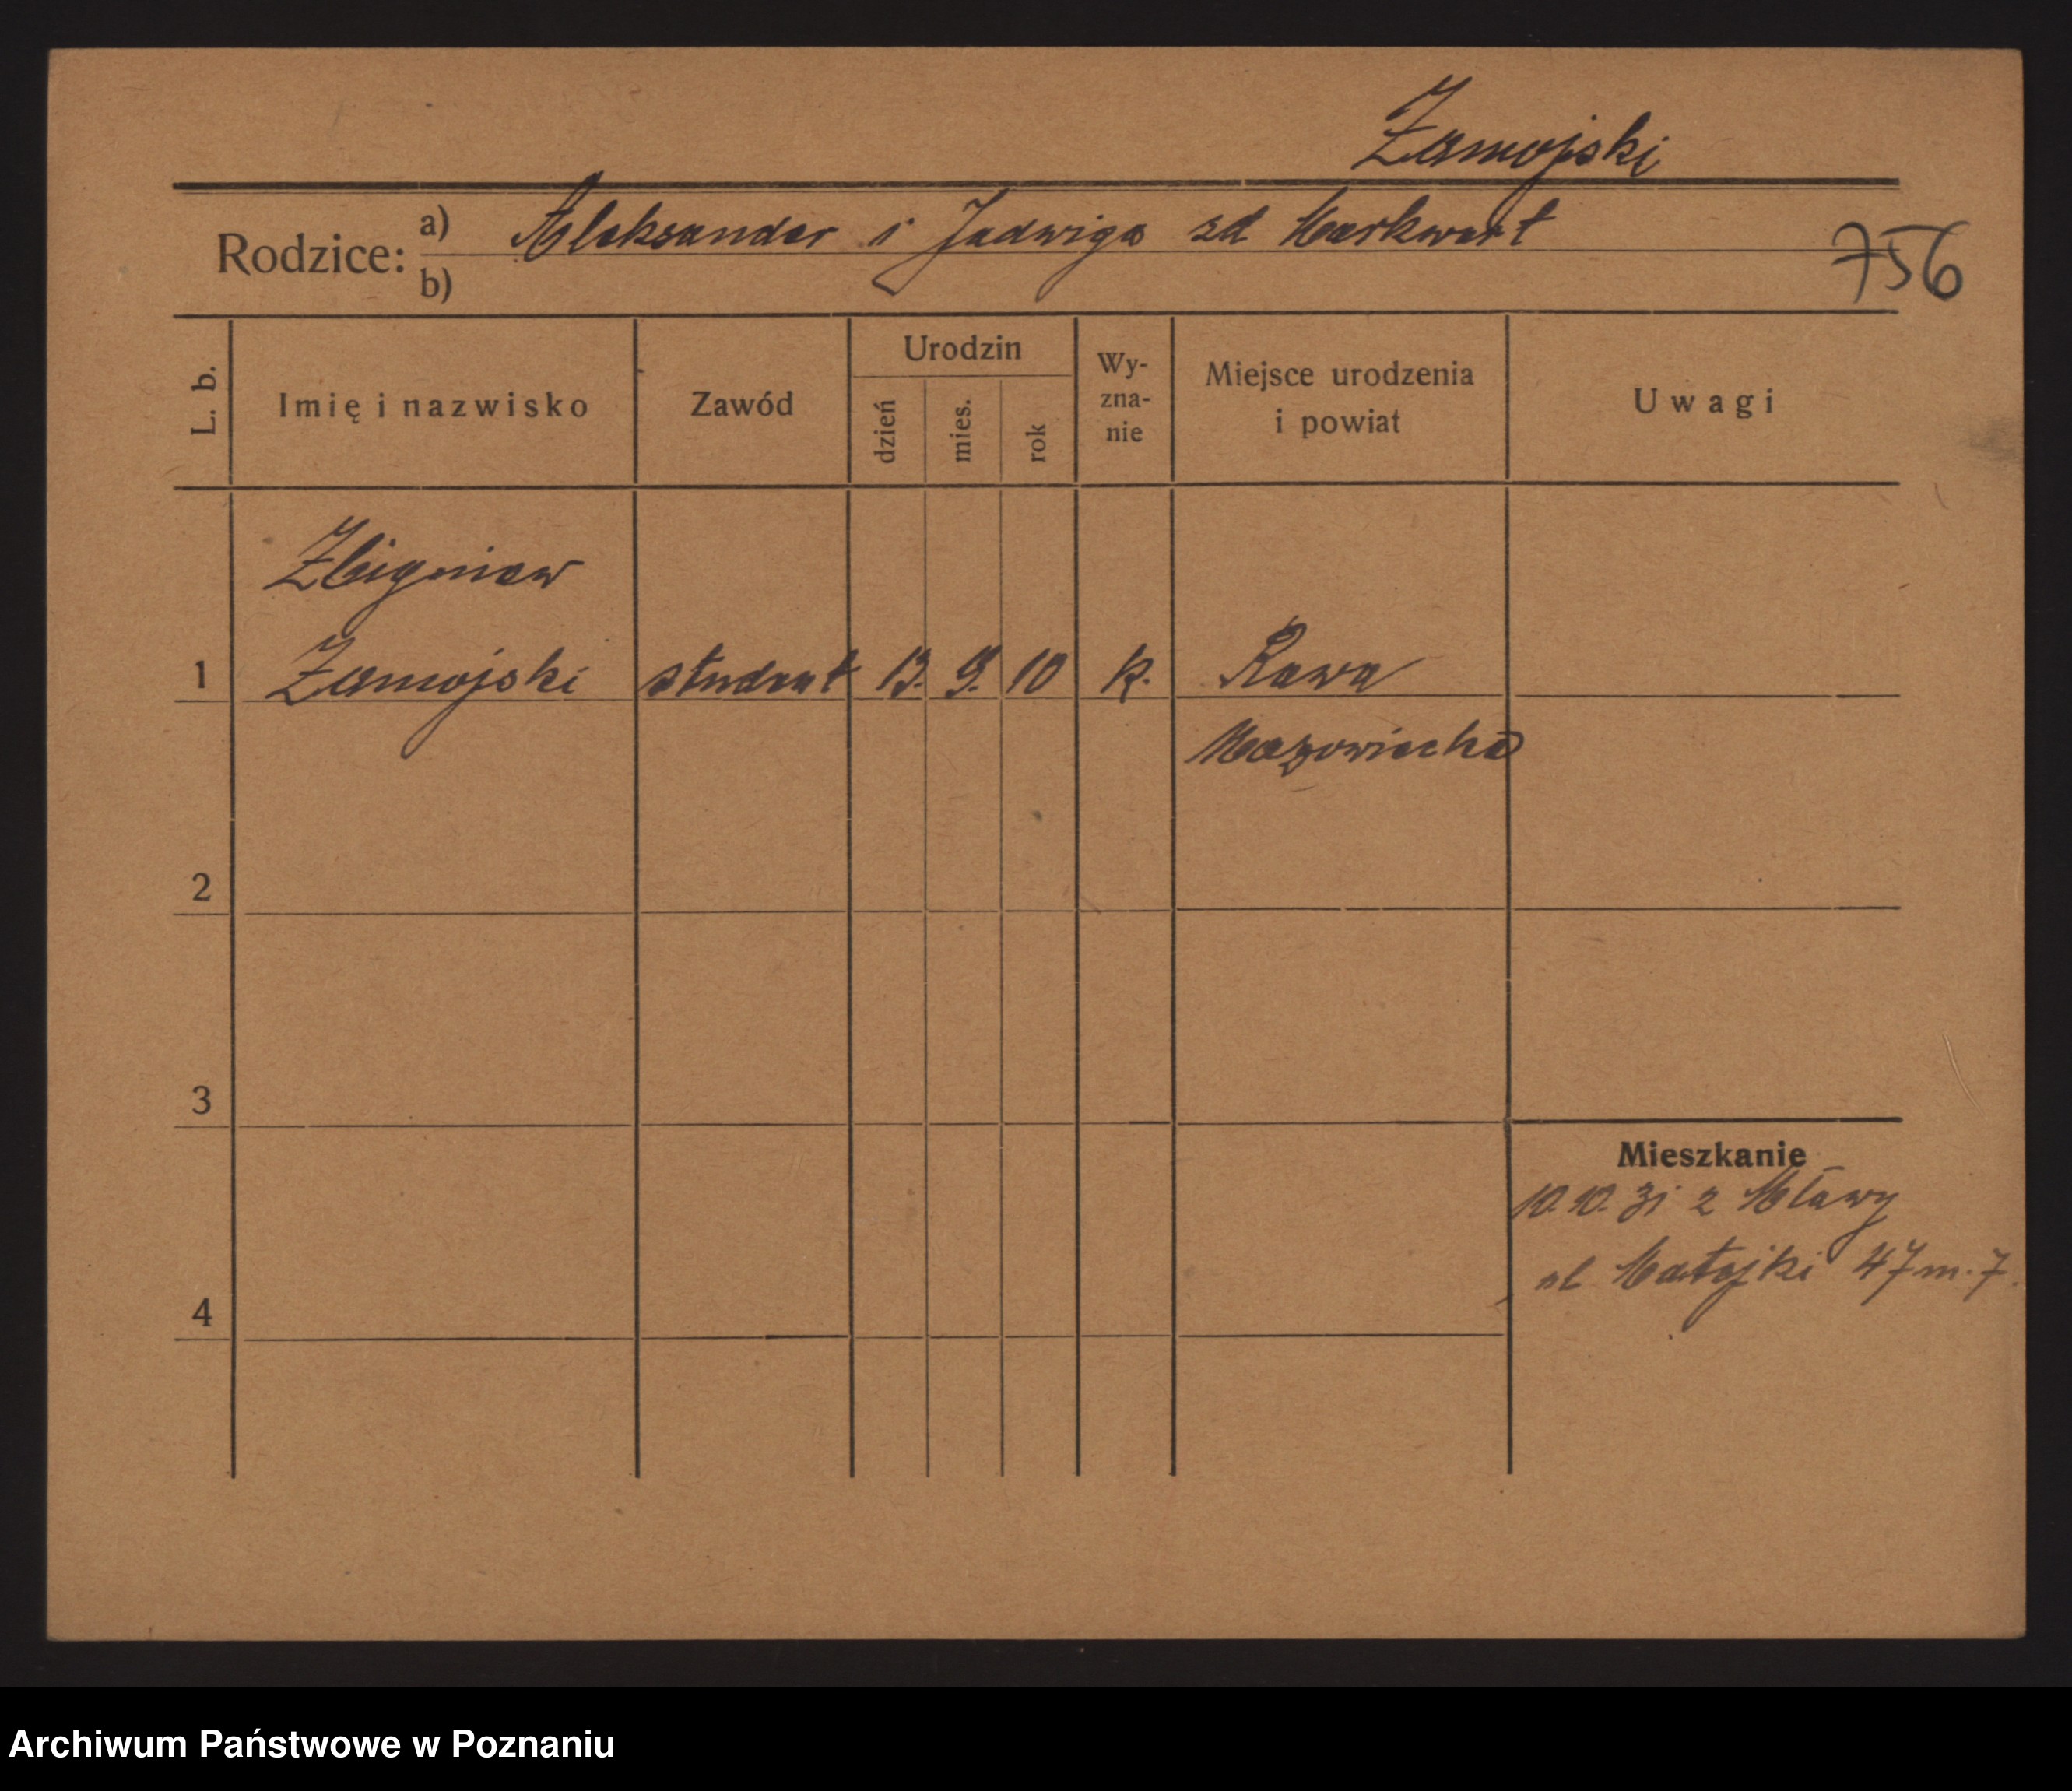 Zamojski
Rodzice: a) Aleksander i Jadwiga zd Markwart
b)
756
L. b.
Imię i nazwisko
Zawód
Urodzin
dzień
mies.
rok
Wy-
zna-
nie
Miejsce urodzenia
i powiat
Uwagi
Zbigniew
1 Zamojski student 13. 9. 10 k. Rawa
Mazowiecka
2
3
4
Mieszkanie
10.10.31 z Mławy
ul Matejki 47 m. 7.
Archiwum Państwowe w Poznaniu